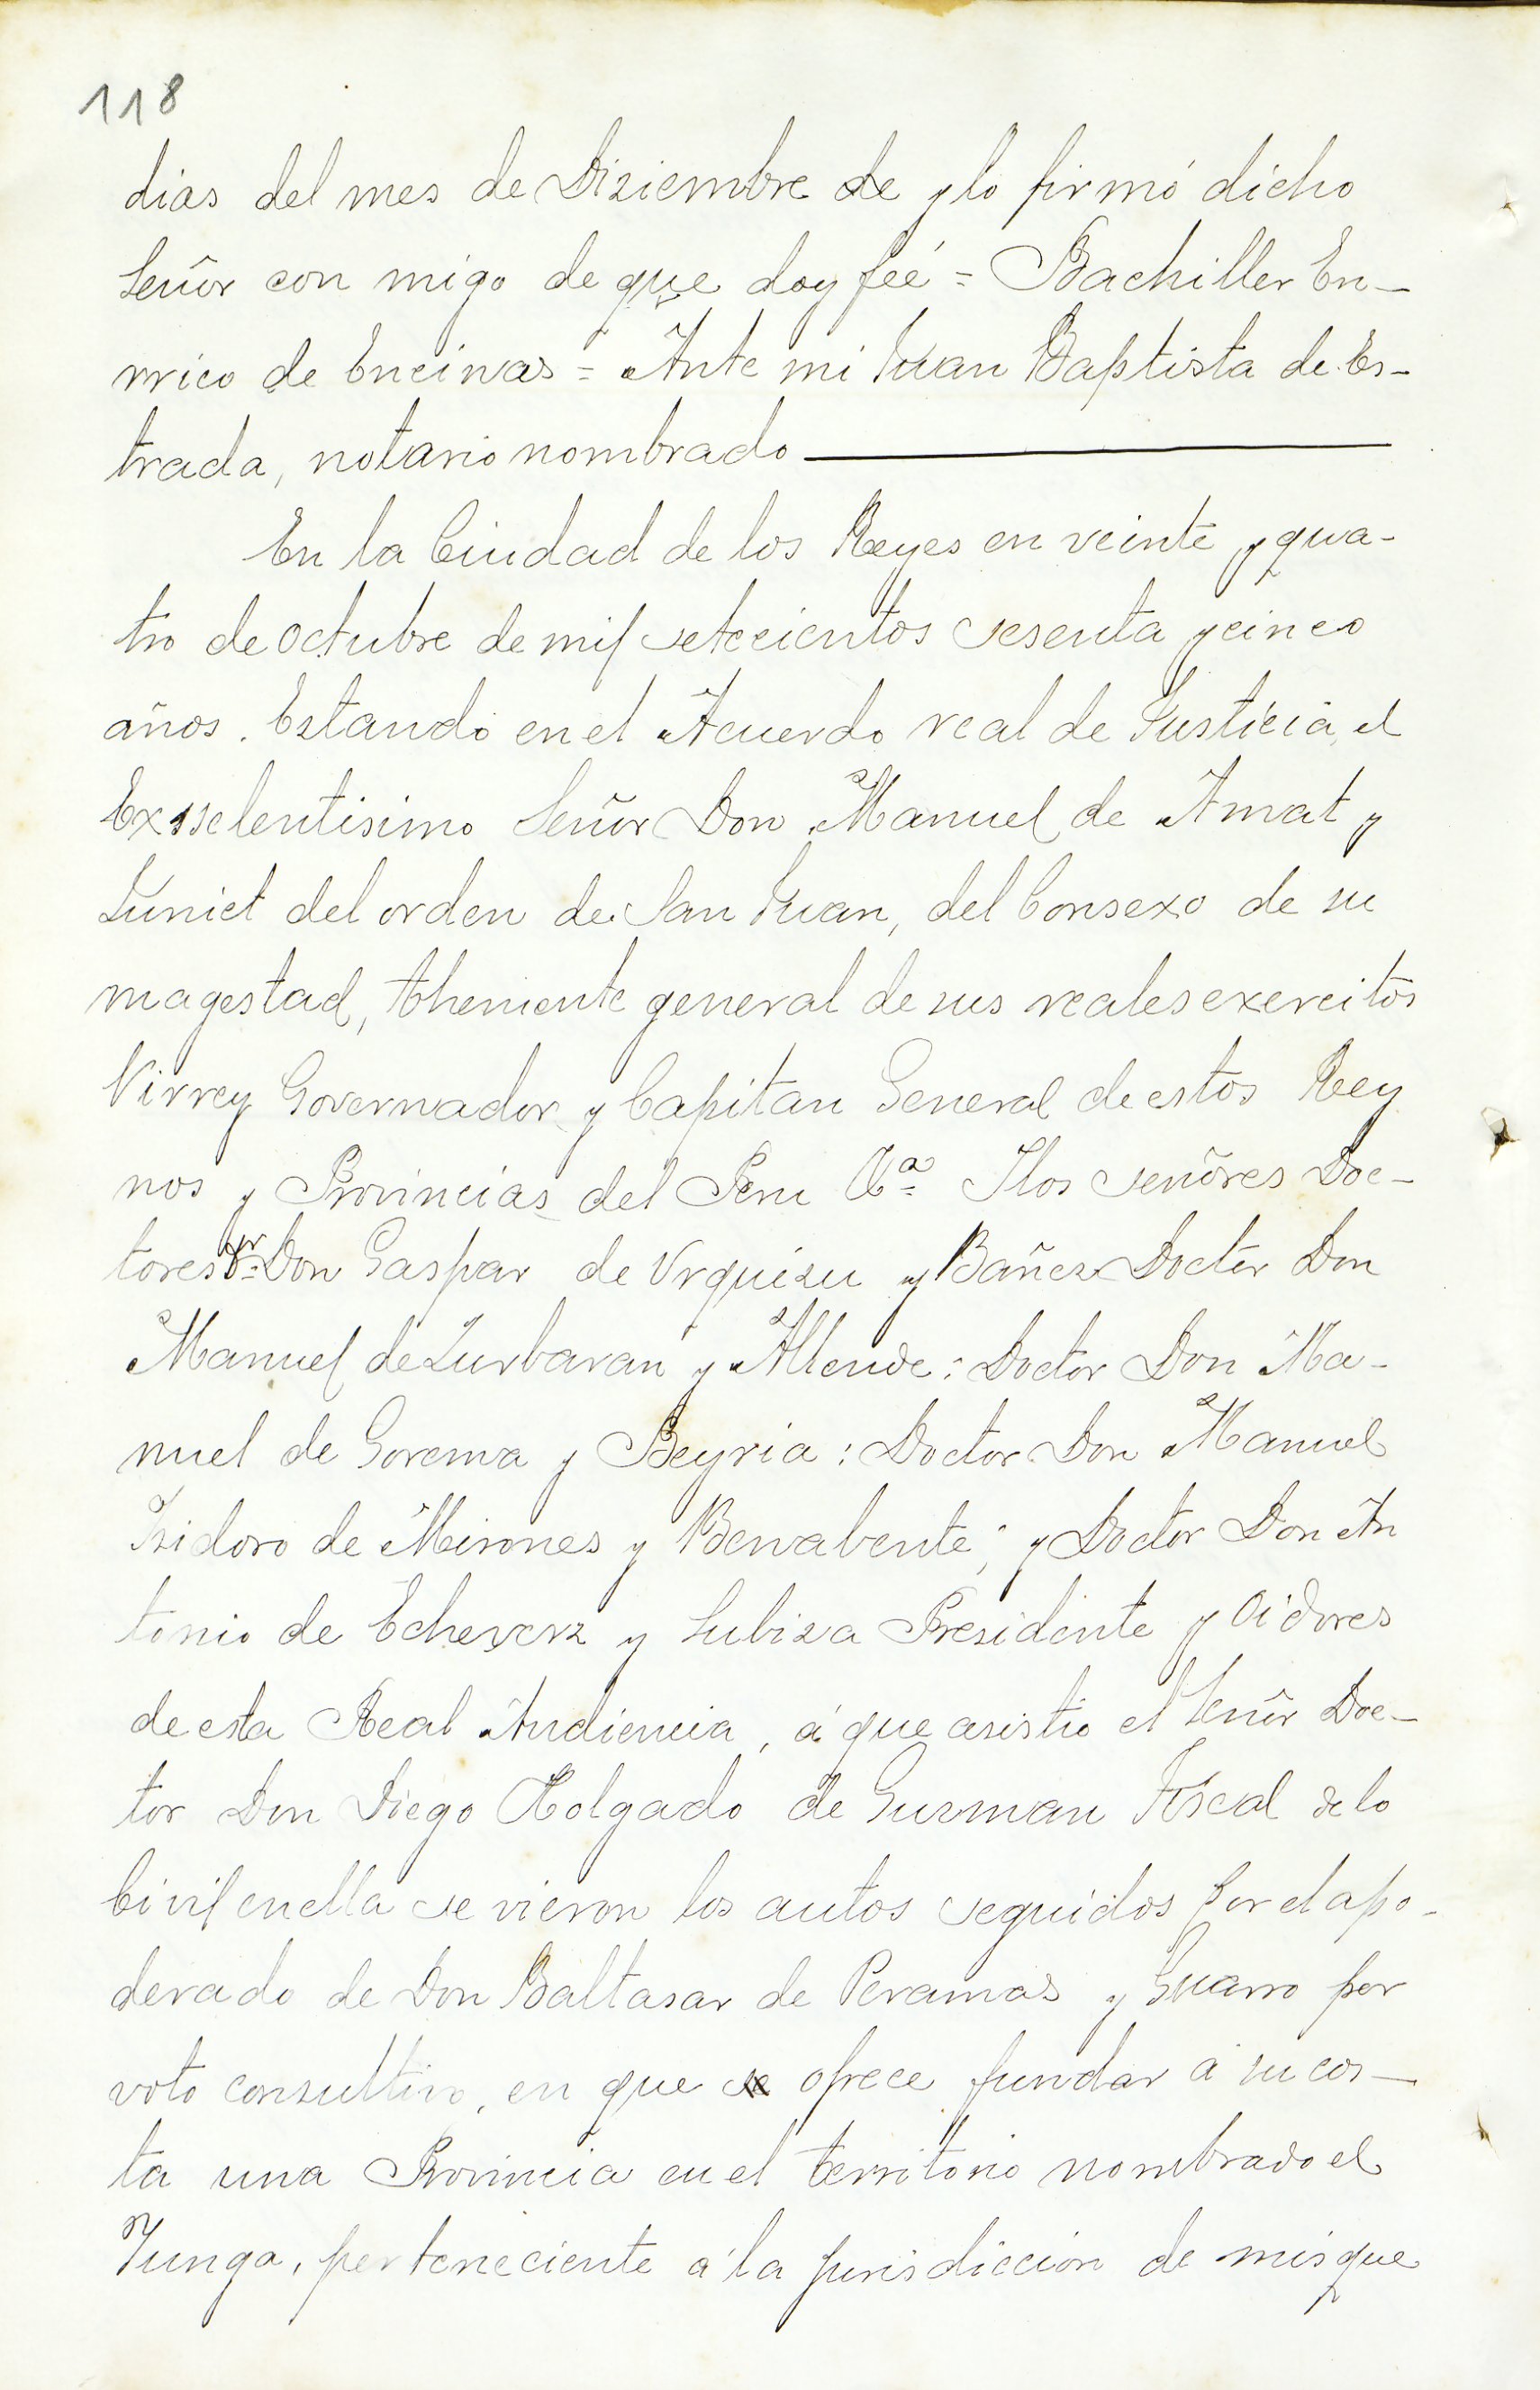 118
dias del mes de Diziembre de y lo firmó dicho
Señor con migo de que doy feé = Bachiller En-
rrico de Encinas = Ante mi Juan Baptista de Es-
trada, notario nombrado
En la Ciudad de los Reyes en veinte y qua-
tro de octubre de mil setecientos sesenta y cinco
años. Estando en el Acuerdo real de Justicia, el
Exsselentisimo Señor Don Manuel de Amat y
Juniet del orden de San Juan, del Consexo de su
magestad, theniente general de sus reales exercitos
Virrey Governador y Capitan General de estos Rey
nos y Provincias del Peru ª Ylos señores Doc-
tores Dr Don Gaspar de Urquizu y Bañez Doctor Don
Manuel de Zurbaran y Allende: Doctor Don Ma-
nuel de Gorena y Beyria: Doctor Don Manuel
Isidoro de Mirones y Benabente; y Doctor Don An
tonio de Echeverz y Subiza Presidente y Oidores
de esta Real Audiencia, á que asistio el Señor Doc-
tor Don Diego Holgado de Guzman Fiscal de lo
Civil en ella se vieron los autos seguidos por el apo-
derado de Don Baltasar de Peramas y Guarro por
voto consultivo, en que se ofrece fundar á su cos-
ta una Provincia en el territorio nombrado el
Yunga, perteneciente a la jurisdiccion de misque